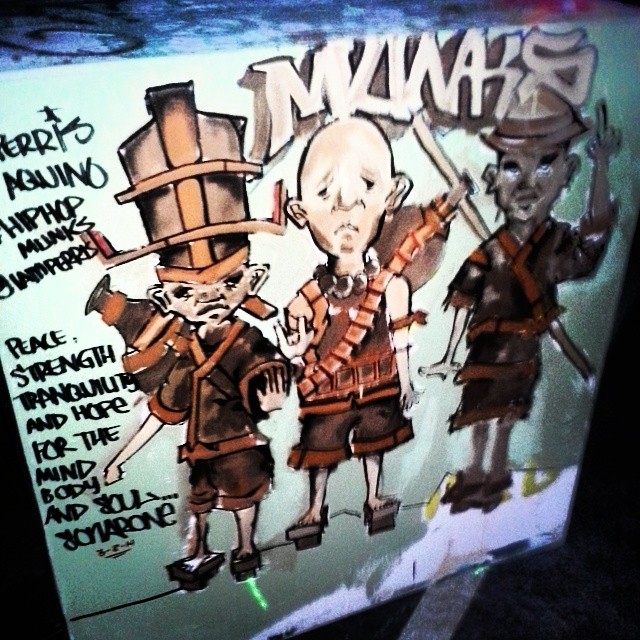 MUNKS
AQUINO
HIPHOP
MUNKS
PEACE.
STRENGTH
TRANQUILITY
AND HOPE
FOR THE
MIND
BODY
AND SOUL...